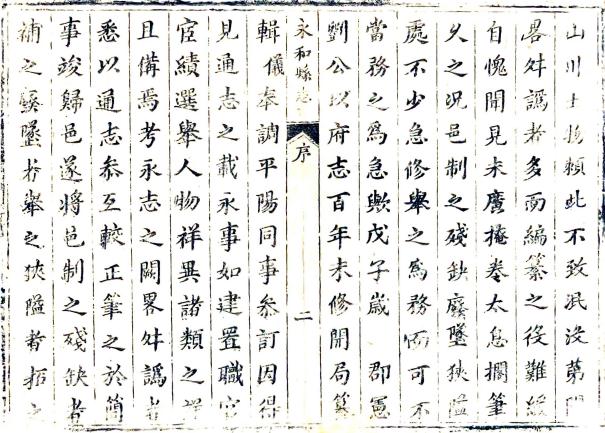 山川土物賴此不致泯沒第闕
畧舛譌者多而編纂之役難緩
自愧聞見未廣掩卷太息擱筆
久之況邑制之殘缺廢墜狹隘
處不少急修舉之為務而可不
當務之為急歟戊子歲 郡憲
劉公以府志百年未修開局纂
永和縣志 序 二
輯儀奉調平陽同事參訂因得
見通志之載永事如建置職官
宦績選舉人物祥異諸類之詳
且備焉考永志之闕畧舛譌者
悉以通志參互較正筆之於簡
事竣歸邑遂將邑制之殘缺者
補之廢墜者舉之狹隘者拓之